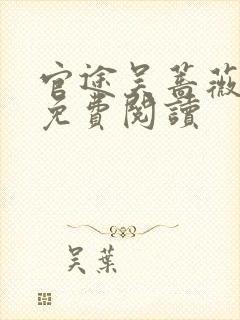 官途吴蔷薇
免費閱讀
吴葉